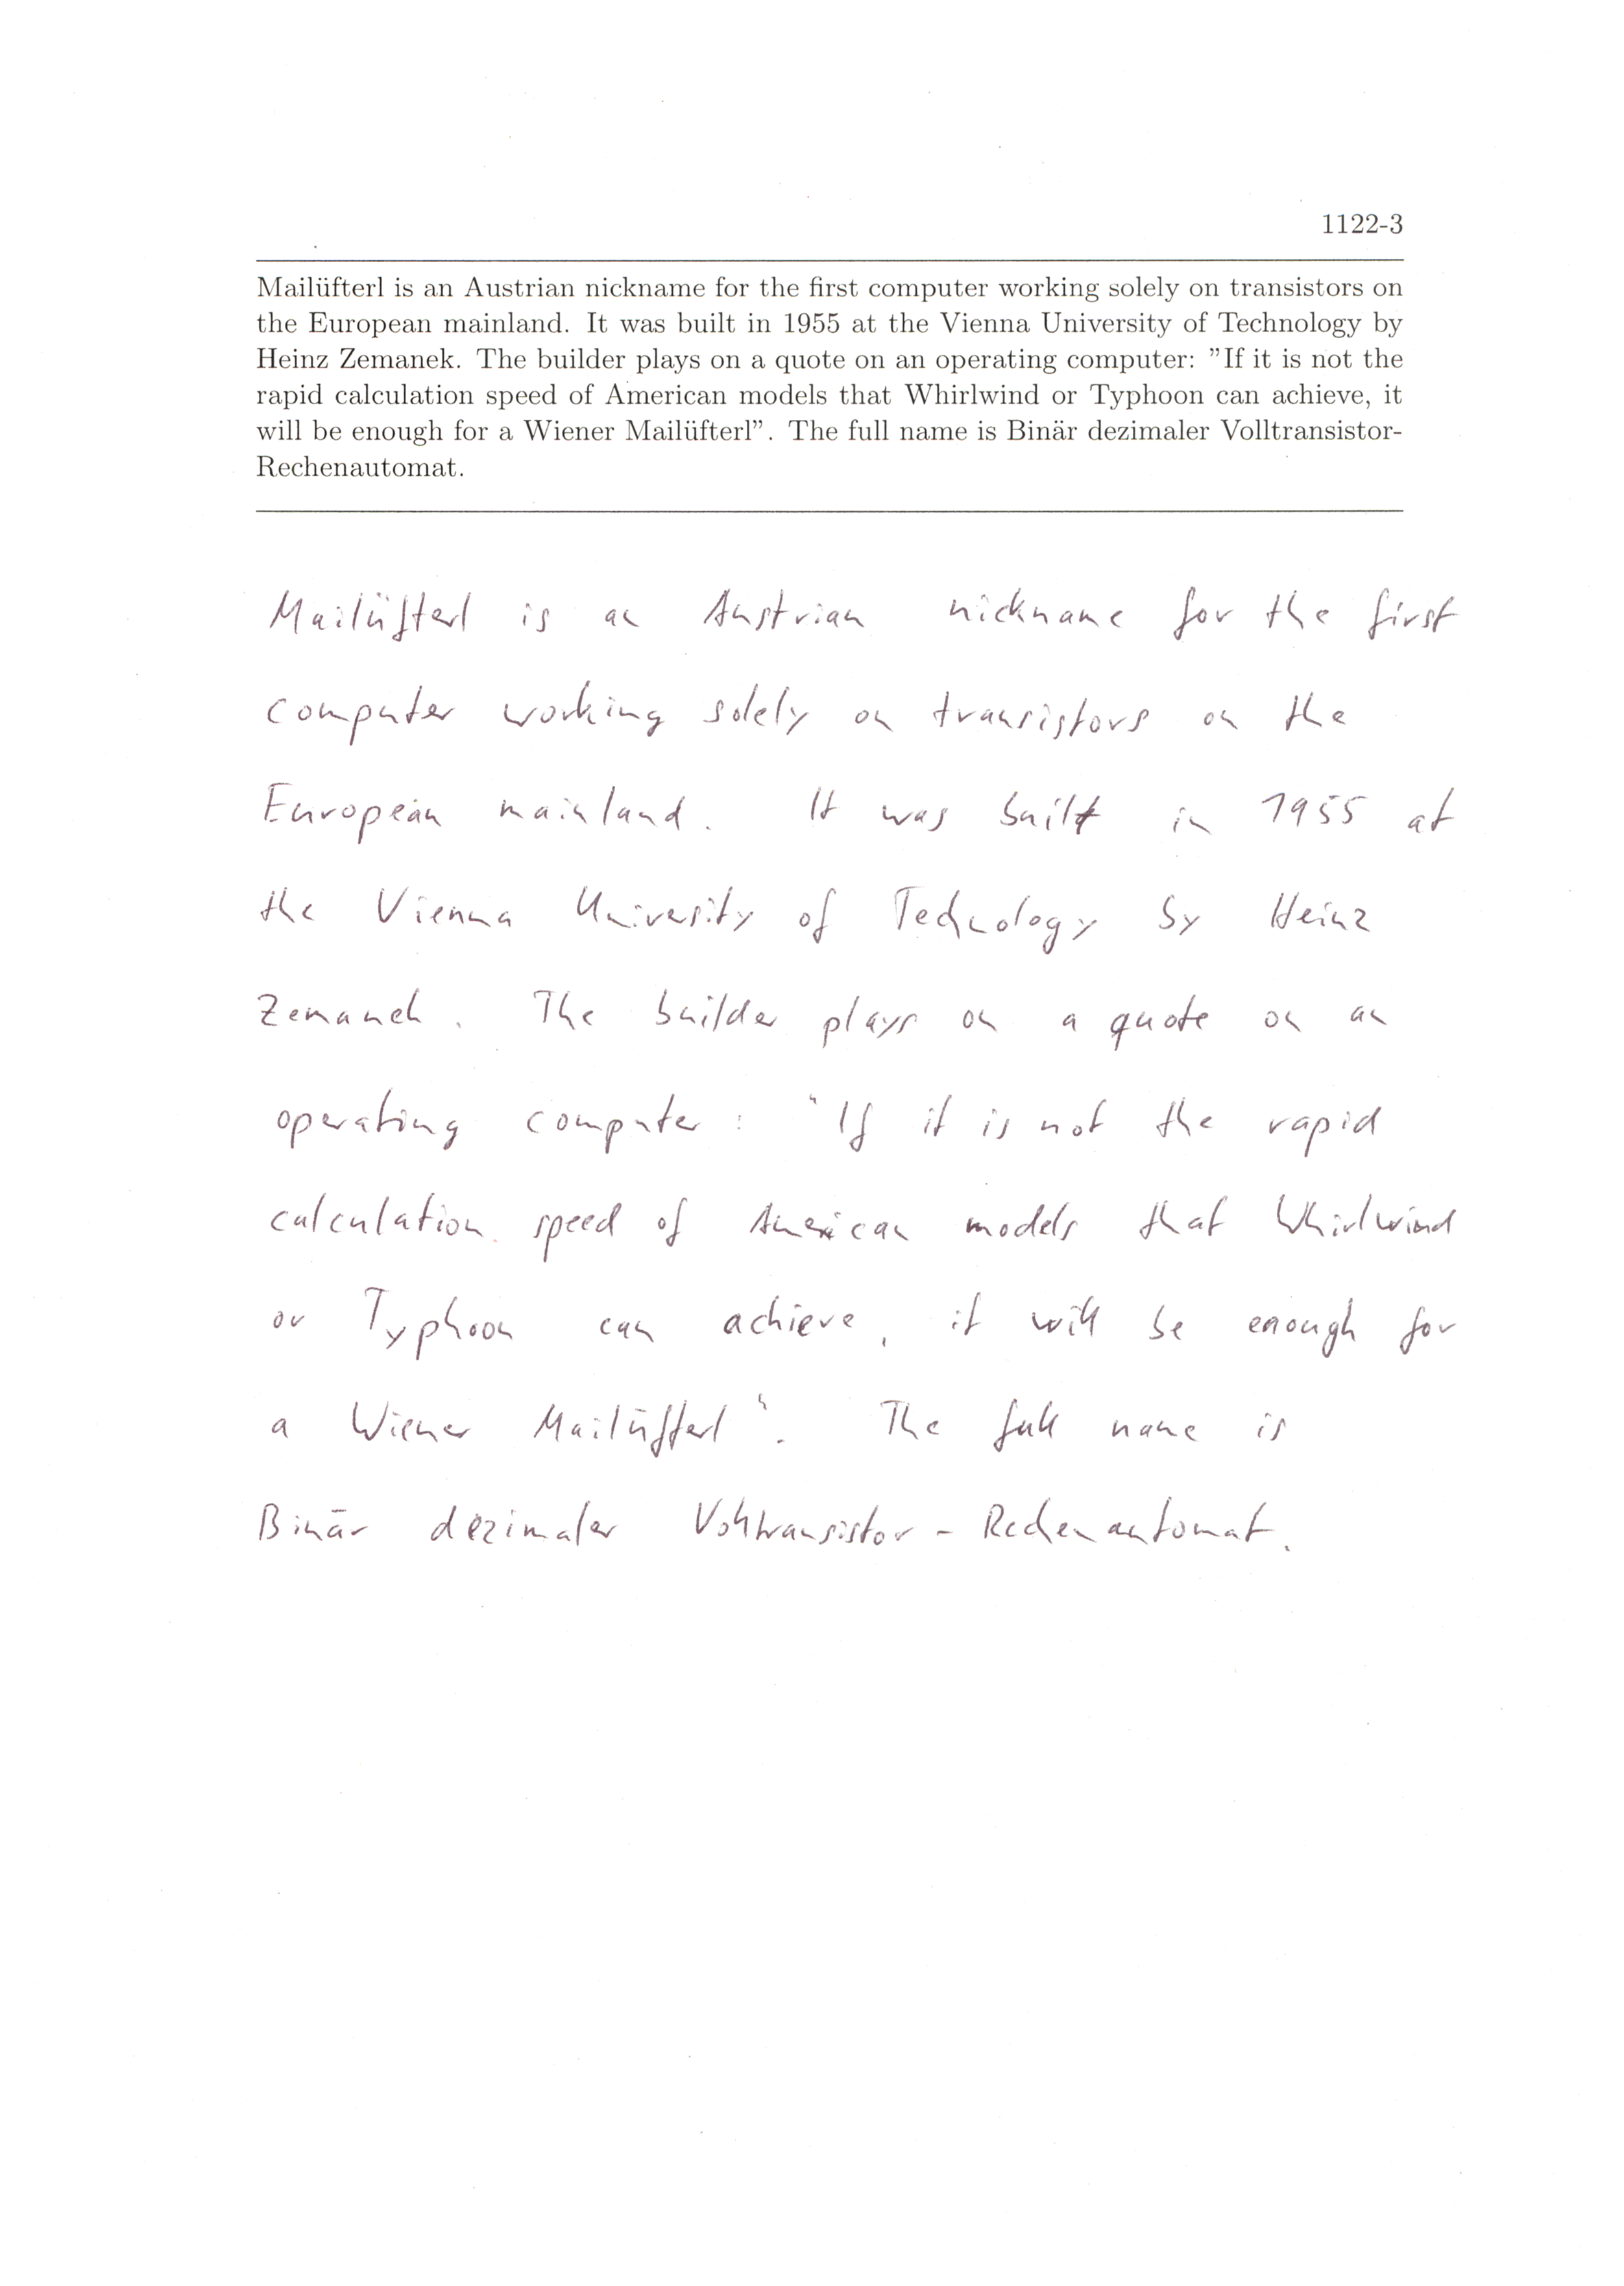 1122-3
Mailüfterl is an Austrian nickname for the first computer working solely on transistors on
the European mainland. It was built in 1955 at the Vienna University of Technology by
Heinz Zemanek. The builder plays on a quote on an operating computer: ”If it is not the
rapid calculation speed of American models that Whirlwind or Typhoon can achieve, it
will be enough for a Wiener Mailüfterl”. The full name is Binär dezimaler Volltransistor-
Rechenautomat.
Mailüfterl is an Austrian nickname for the first
computer working solely on transistors on the
European mainland. It was built in 1955 at
the Vienna University of Technology by Heinz
Zemanek. The builder plays on a quote on an
operating computer: "If it is not the rapid
calculation speed of American models that Whirlwind
or Typhoon can achieve, it will be enough for
a Wiener Mailüfterl". The full name is
Binär dezimaler Volltransistor-Rechenautomat.